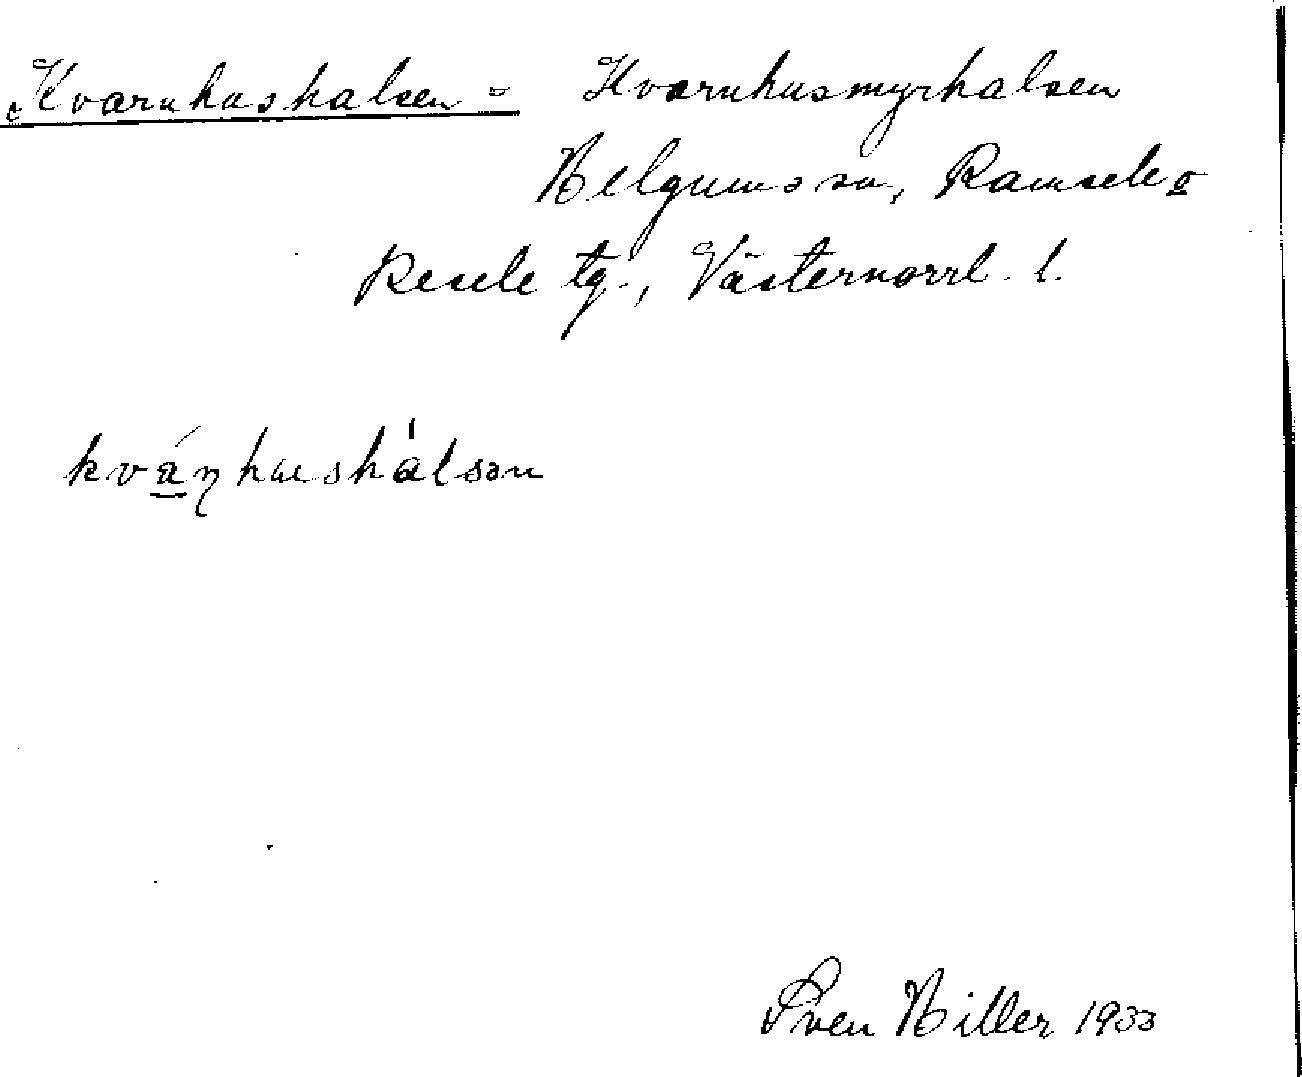 Kvarnhushalsen = Kvarnhusmyrhalsen
Helgums sn, Ramsele o
Resele tg., Västernorrl. l.
kváṇhushàlsən
Sven Hiller 1933